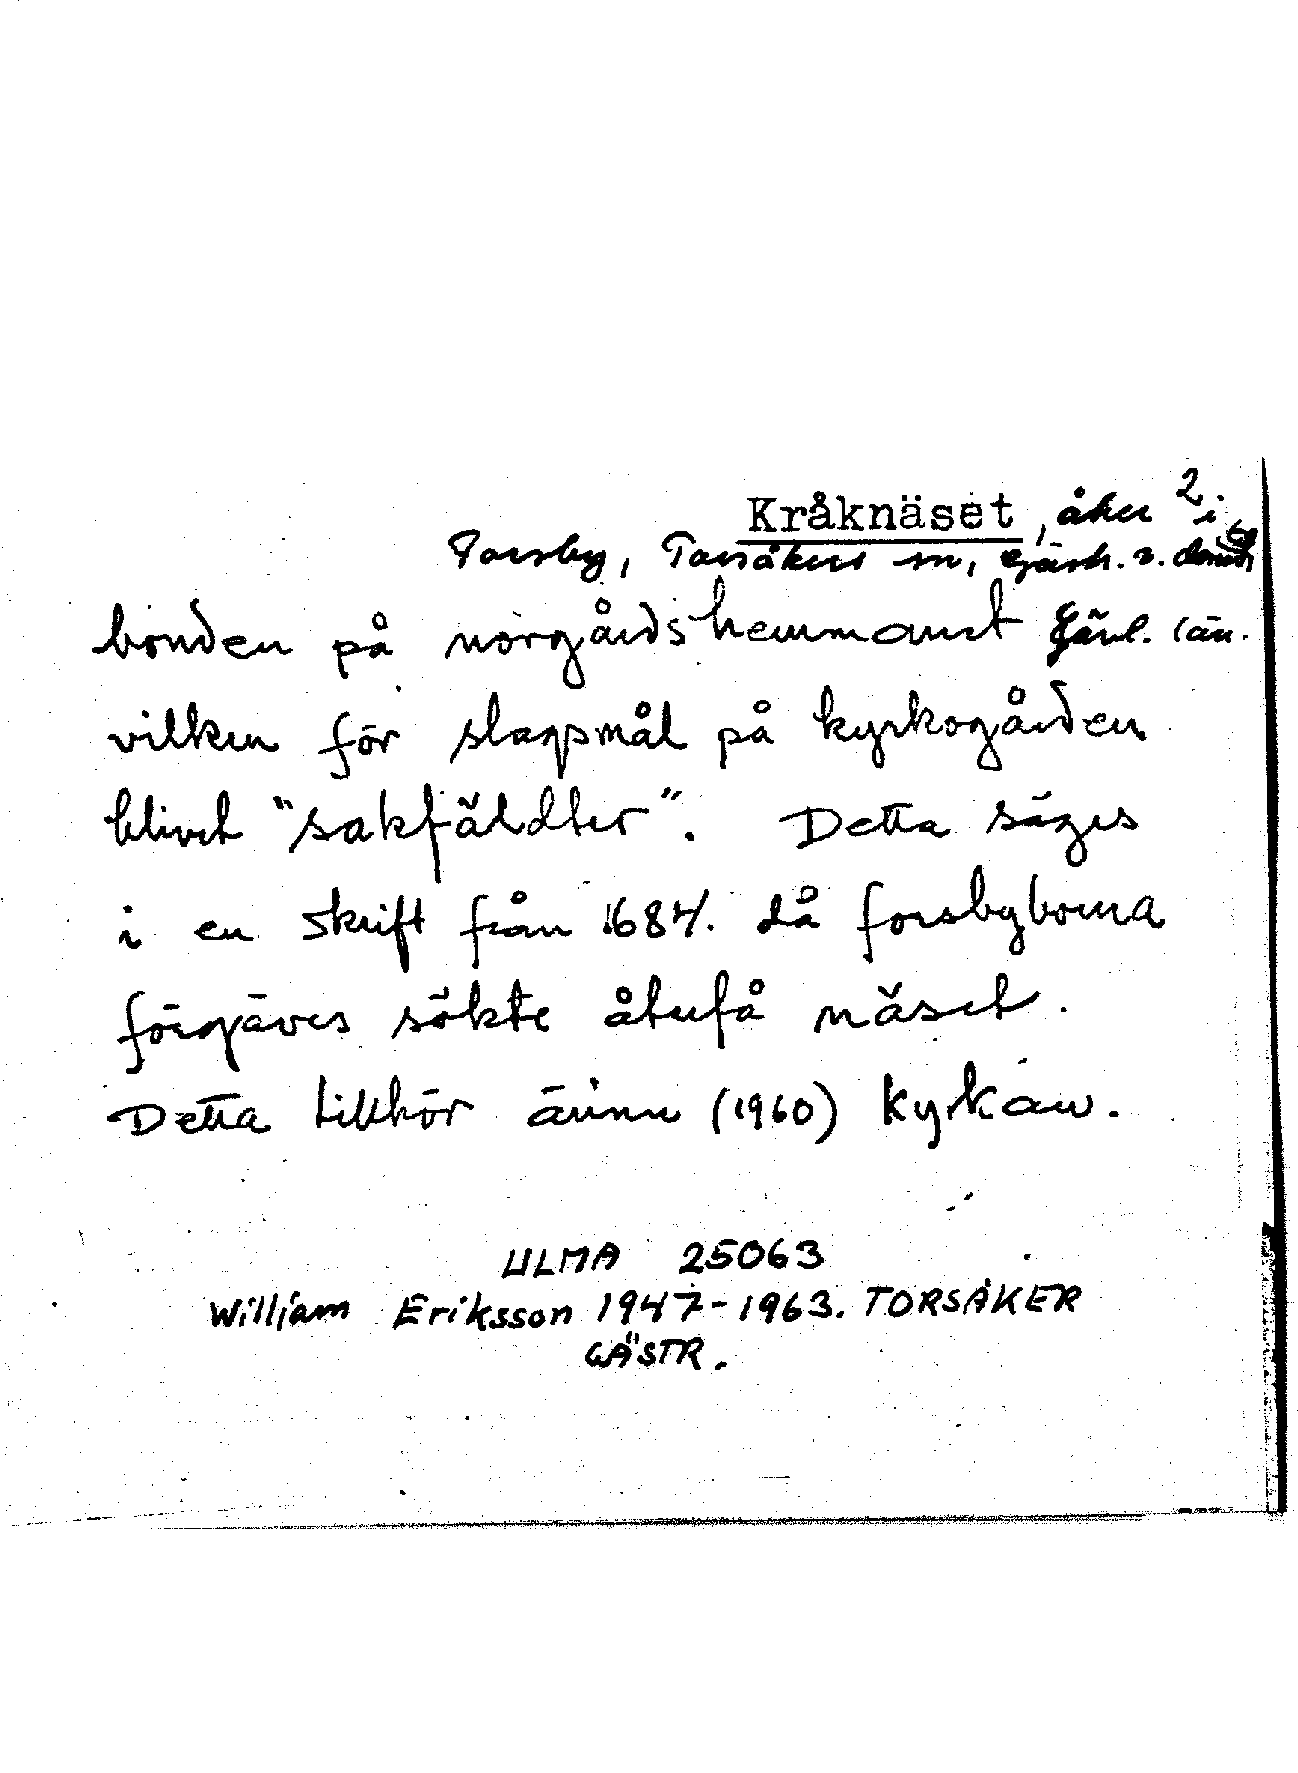 2
Kråknäset, åker i
Forsby, Torsåkers sn, Gästr. ö. domsaga
bonden på norgårdshemmanet Gävl. län.
vilken för slagsmål på kyrkogården
blivet "sakfäldter". Detta säges
i en skrift från 1684. då forsbyborna
förgäves sökte återfå näset.
Detta tillhör ännu (1960) kyrkan.
ULMA 25063
William Eriksson 1947-1963. TORSÅKER
GÄSTR.